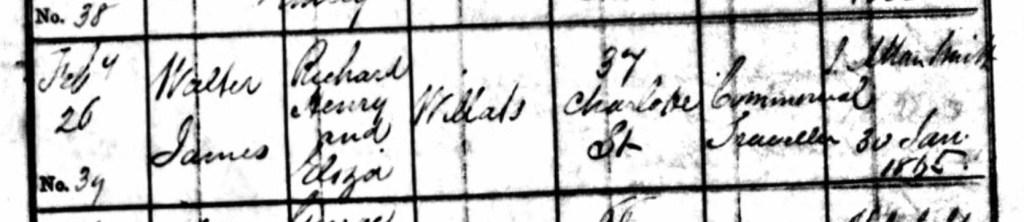 No. 38
Feby
26
No. 39
Walter
James
Richard
Henry
and
Eliza
Willats
37
Charlotte
St
Commercial
Traveller
30 Jan.
1865.